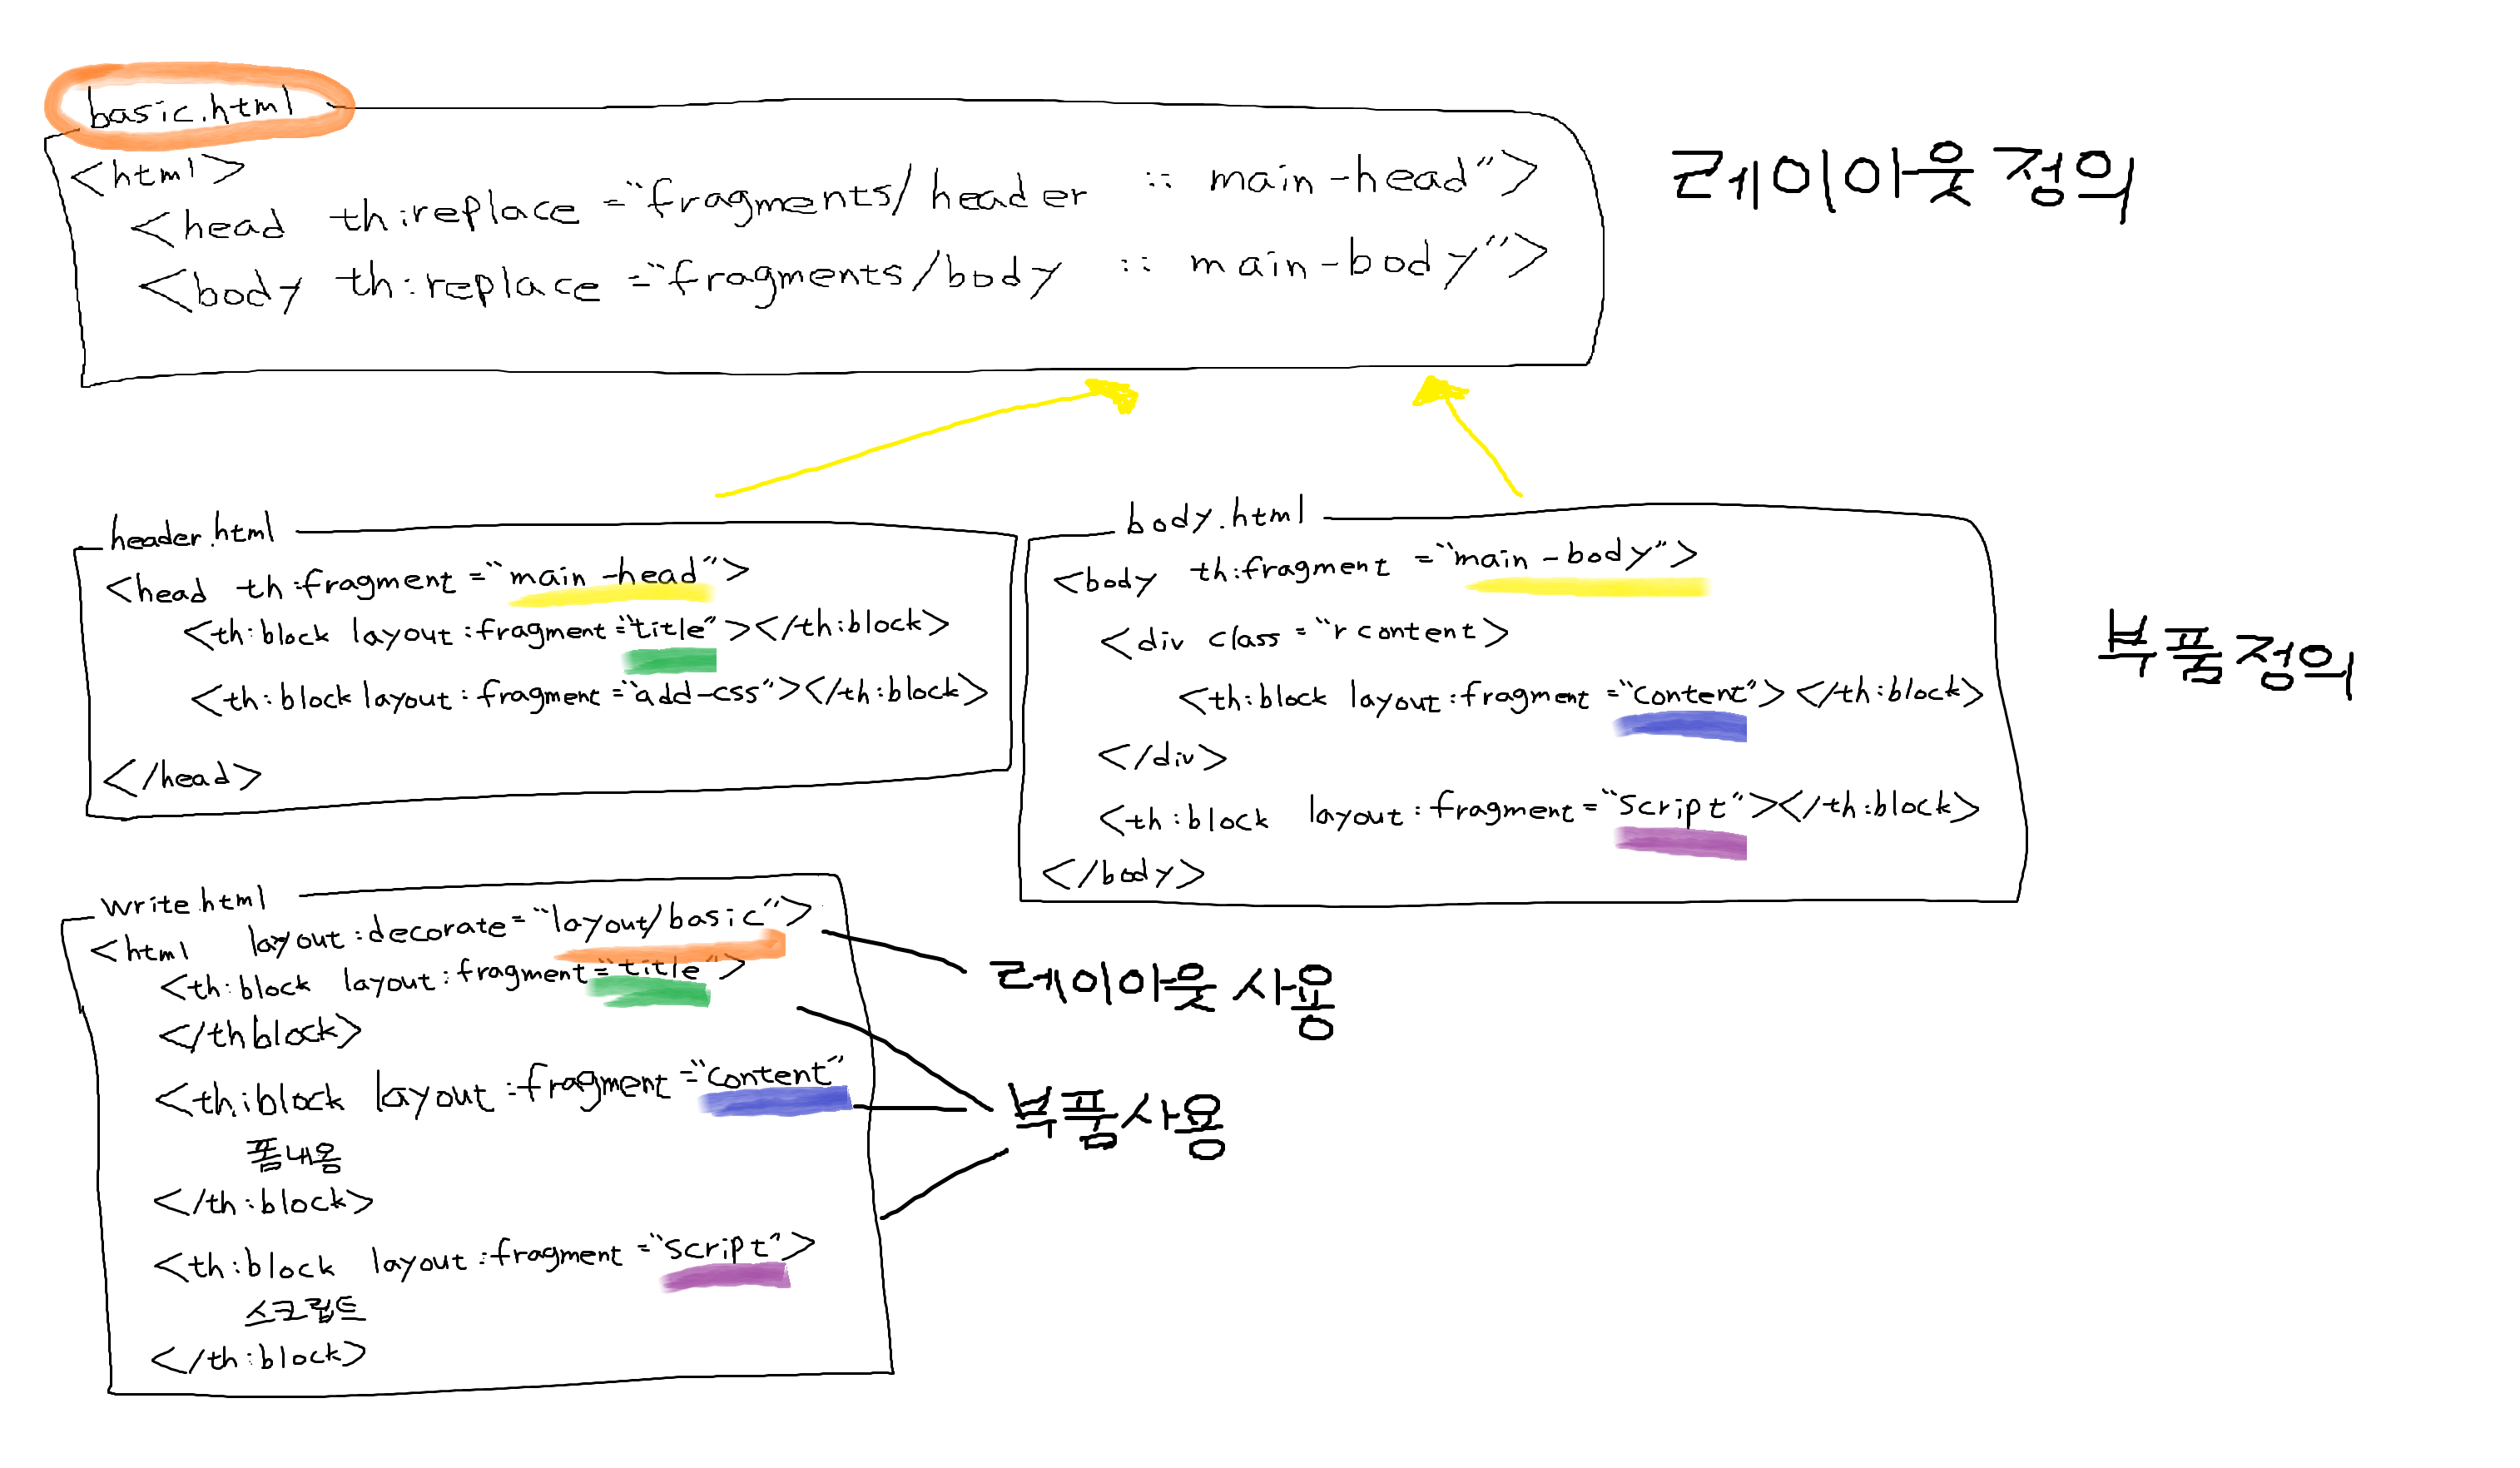 basic.html
<html>
<head th:replace="fragments/header :: main-head">
<body th:replace="fragments/body :: main-body">
레이아웃 정의
header.html
<head th:fragment="main-head">
<th:block layout:fragment="title"></th:block>
<th:block layout:fragment="add-css"></th:block>
</head>
body.html
<body th:fragment="main-body">
<div class="r content>
<th:block layout:fragment="content"></th:block>
</div>
<th:block layout:fragment="script"></th:block>
</body>
부품정의
write.html
<html layout:decorate="layout/basic">
<th:block layout:fragment="title">
</thblock>
<th:block layout:fragment="content"
폼내용
</th:block>
<th:block layout:fragment="script">
스크립트
</th:block>
레이아웃 사용
부품사용